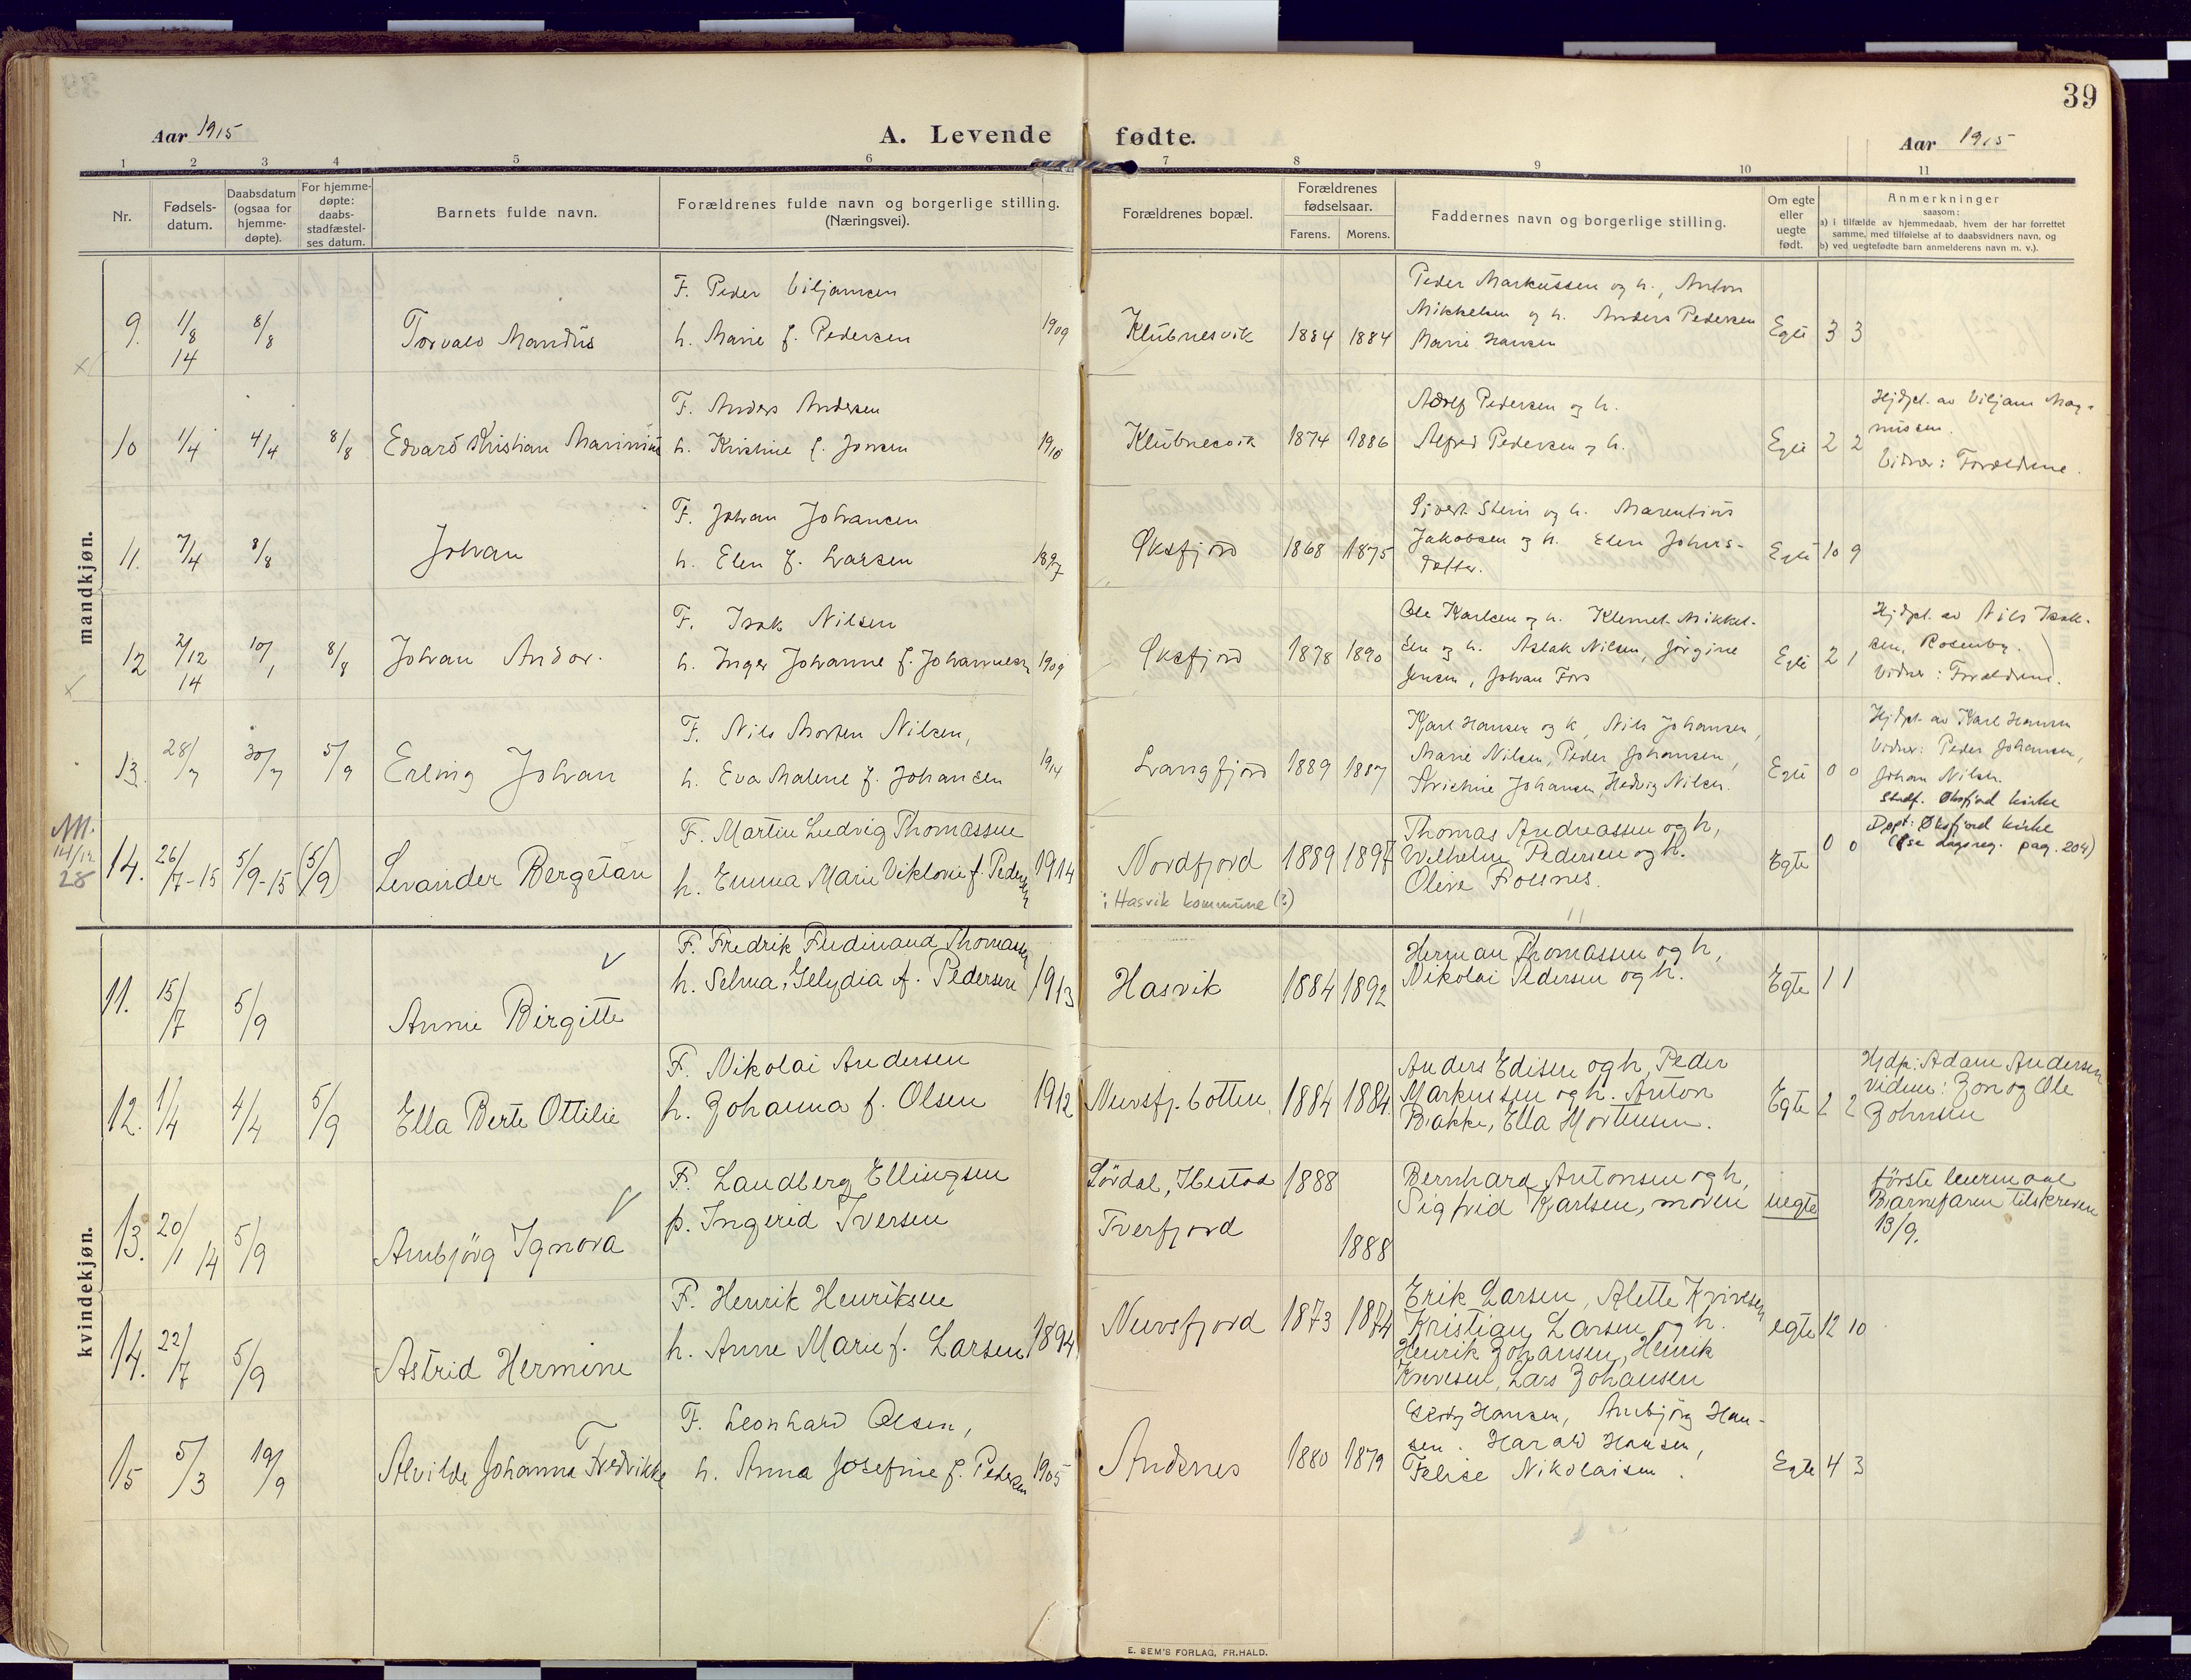 39
Aar 1915
A. Levende fødte.
Aar 1915
1 2 3 4 5 6 7 8 9 10 11
Nr.
Fødsels-
datum.
Daabsdatum
(ogsaa for
hjemme-
døpte).
For hjemme-
døpte:
daabs-
stadfæstel-
ses datum.
Barnets fulde navn.
Forældrenes fulde navn og borgerlige stilling.
(Næringsvei).
Forældrenes bopæl.
Forældrenes
fødselsaar.
Farens. Morens.
Faddernes navn og borgerlige stilling.
Om egte
eller
uegte
født.
Anmerkninger
saasom:
a) i tilfælde av hjemmedaab, hvem der har forrettet
samme, med tilføielse af to daabsvidners navn, og
b) ved uegtefødte barn anmelderens navn m. v.).
mandkjøn.
9. 1/8 14 8/8
Torvald Mandus
F. Peder Viljamsen
h. Marie f. Pedersen 1909
Klubnesvik 1884 1884
Peder Markussen og h., Anton
Mikkelsen og h. Anders Pedersen
Marie Hansen
Egte 3 3
10 1/4 4/4 8/8
Edvard Kristian Marinius
F. Anders Andersen
h. Kristine f. Jonsen 1910
Klubnesvik 1874 1886
Adolf Pedersen og h.
Alfred Pedersen og h.
Egte 2 2
Hjdpt. av Viljam Mag-
nussen.
Vidner: Forældrene.
11. 7/4 8/8
Johan
F. Johan Johansen
h. Elen f. Larsen 1897
Øksfjord 1868 1875
Sivert Stein og h. Marentius
Jakobsen og h. Elen Johns-
datter.
Egte 10 9
12 2/12 14 10/1 8/8
Johan Andor.
F. Isak Nilsen
h. Inger Johanne f. Johannesen 1909
Øksfjord 1878 1890
Ole Karlsen og h. Klemet Mikkel-
sen og h. Aslak Nilsen, Jørgine
Jensen, Johan Fors
Egte 2 1
Hjdpt. av Nils Isak-
sen, Rosenby.
Vidner: Forældrene.
13. 28/7 30/7 5/9
Erling Johan
F. Nils Morten Nilsen,
h. Eva Malene f. Johansen 1914
Langfjord 1889 1887
Karl Hansen og h, Nils Johansen,
Marie Nilsen, Peder Johansen,
Kristine Johansen, Hedvig Nilsen.
Egte 0 0
Hjdpt. av Karl Hansen
Vidner: Peder Johansen,
Johan Nilsen.
Stadf. Øksfjord kirke
14/12 28
14. 26/7-15 5/9-15 (5/9)
Levander Bergetan
F. Martin Ludvig Thomassen
h. Emma Marie Viktorie f. Pedersen 1914
Nordfjord 1889 1897
i Hasvik kommune (?)
Thomas Andreassen og h,
Wilhelm Pedersen og h.
Oline Rolsnes.
Egte 0 0
Døpt: Øksfjord kirke
(se dagreg. pag. 204)
kvindekjøn.
11. 15/7 5/9
Annie Birgitte
F. Fredrik Ferdinand Thomassen
h. Selma, Gelydia f. Pedersen 1913
Hasvik 1884 1892
Herman Thomassen og h,
Nikolai Pedersen og h.
Egte 1 1
12. 1/4 4/4 5/9
Ella Berte Ottilie
F. Nikolai Andersen
h. Johanna f. Olsen 1912
Nuvsfj.botten 1884 1884
Anders Edisen og h, Peder
Markussen og h. Anton
Bakke, Ella Mortensen.
Egte 2 2
Hjdp: Adam Andersen
Vidner: Jon og Ole
Johnsen
13. 20/1 14 5/9
Ambjörg Ignora
F. Landberg Ellingsen
p. Ingerid Iversen
Sördal, Ibestad 1888
Tverfjord 1888
Bernhard Antonsen og h,
Sigfrid Karlsen, moren
uegte
første leiermaal
Barnefaren tilskreven
13/9.
14. 22/7 5/9
Astrid Hermine
F. Henrik Henriksen
h. Anne Marie f. Larsen 1894
Nuvsfjord 1873 1874
Erik Larsen, Alette Knivesen
Kristian Larsen og h.
Henrik Johansen, Henrik
Knivesen, Lars Johansen
egte 12 10
15 5/3 19/9
Alvilde Johanna Fredrikke
F. Leonhard Olsen,
h. Anna Josefine f. Pedersen 1905
Andsnes 1880 1879
Hansen, Ambjörg Han-
sen. Harald Hansen,
Felise Nikolaisen.
Egte 4 3
E. SEM'S FORLAG, FR.HALD.